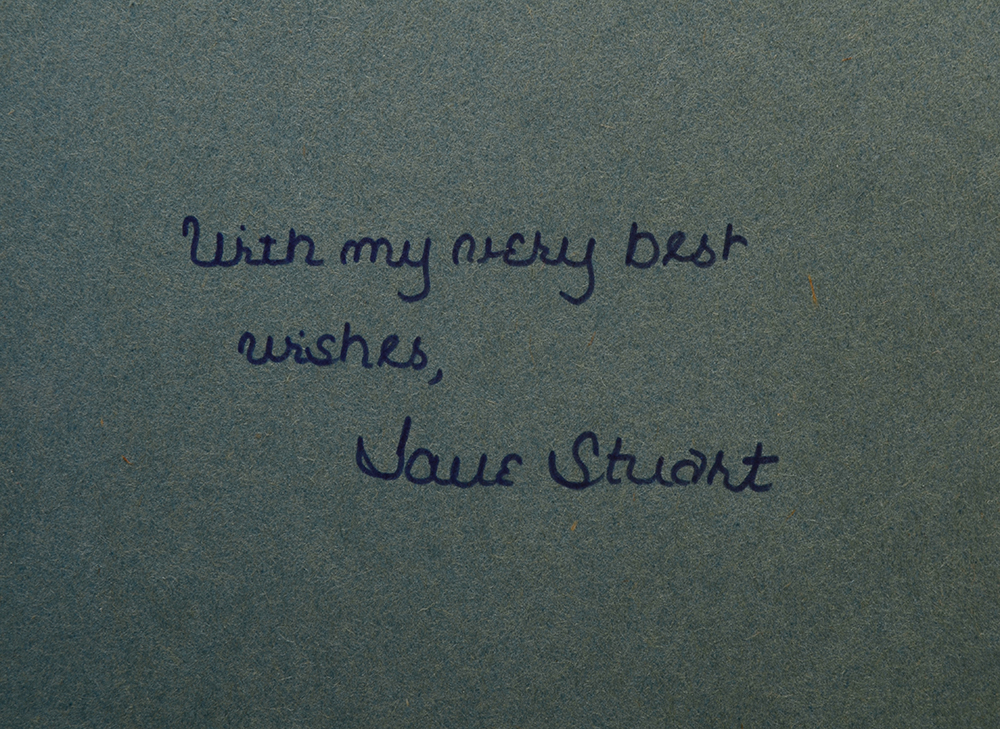 With my very best
wishes,
Jane Stuart